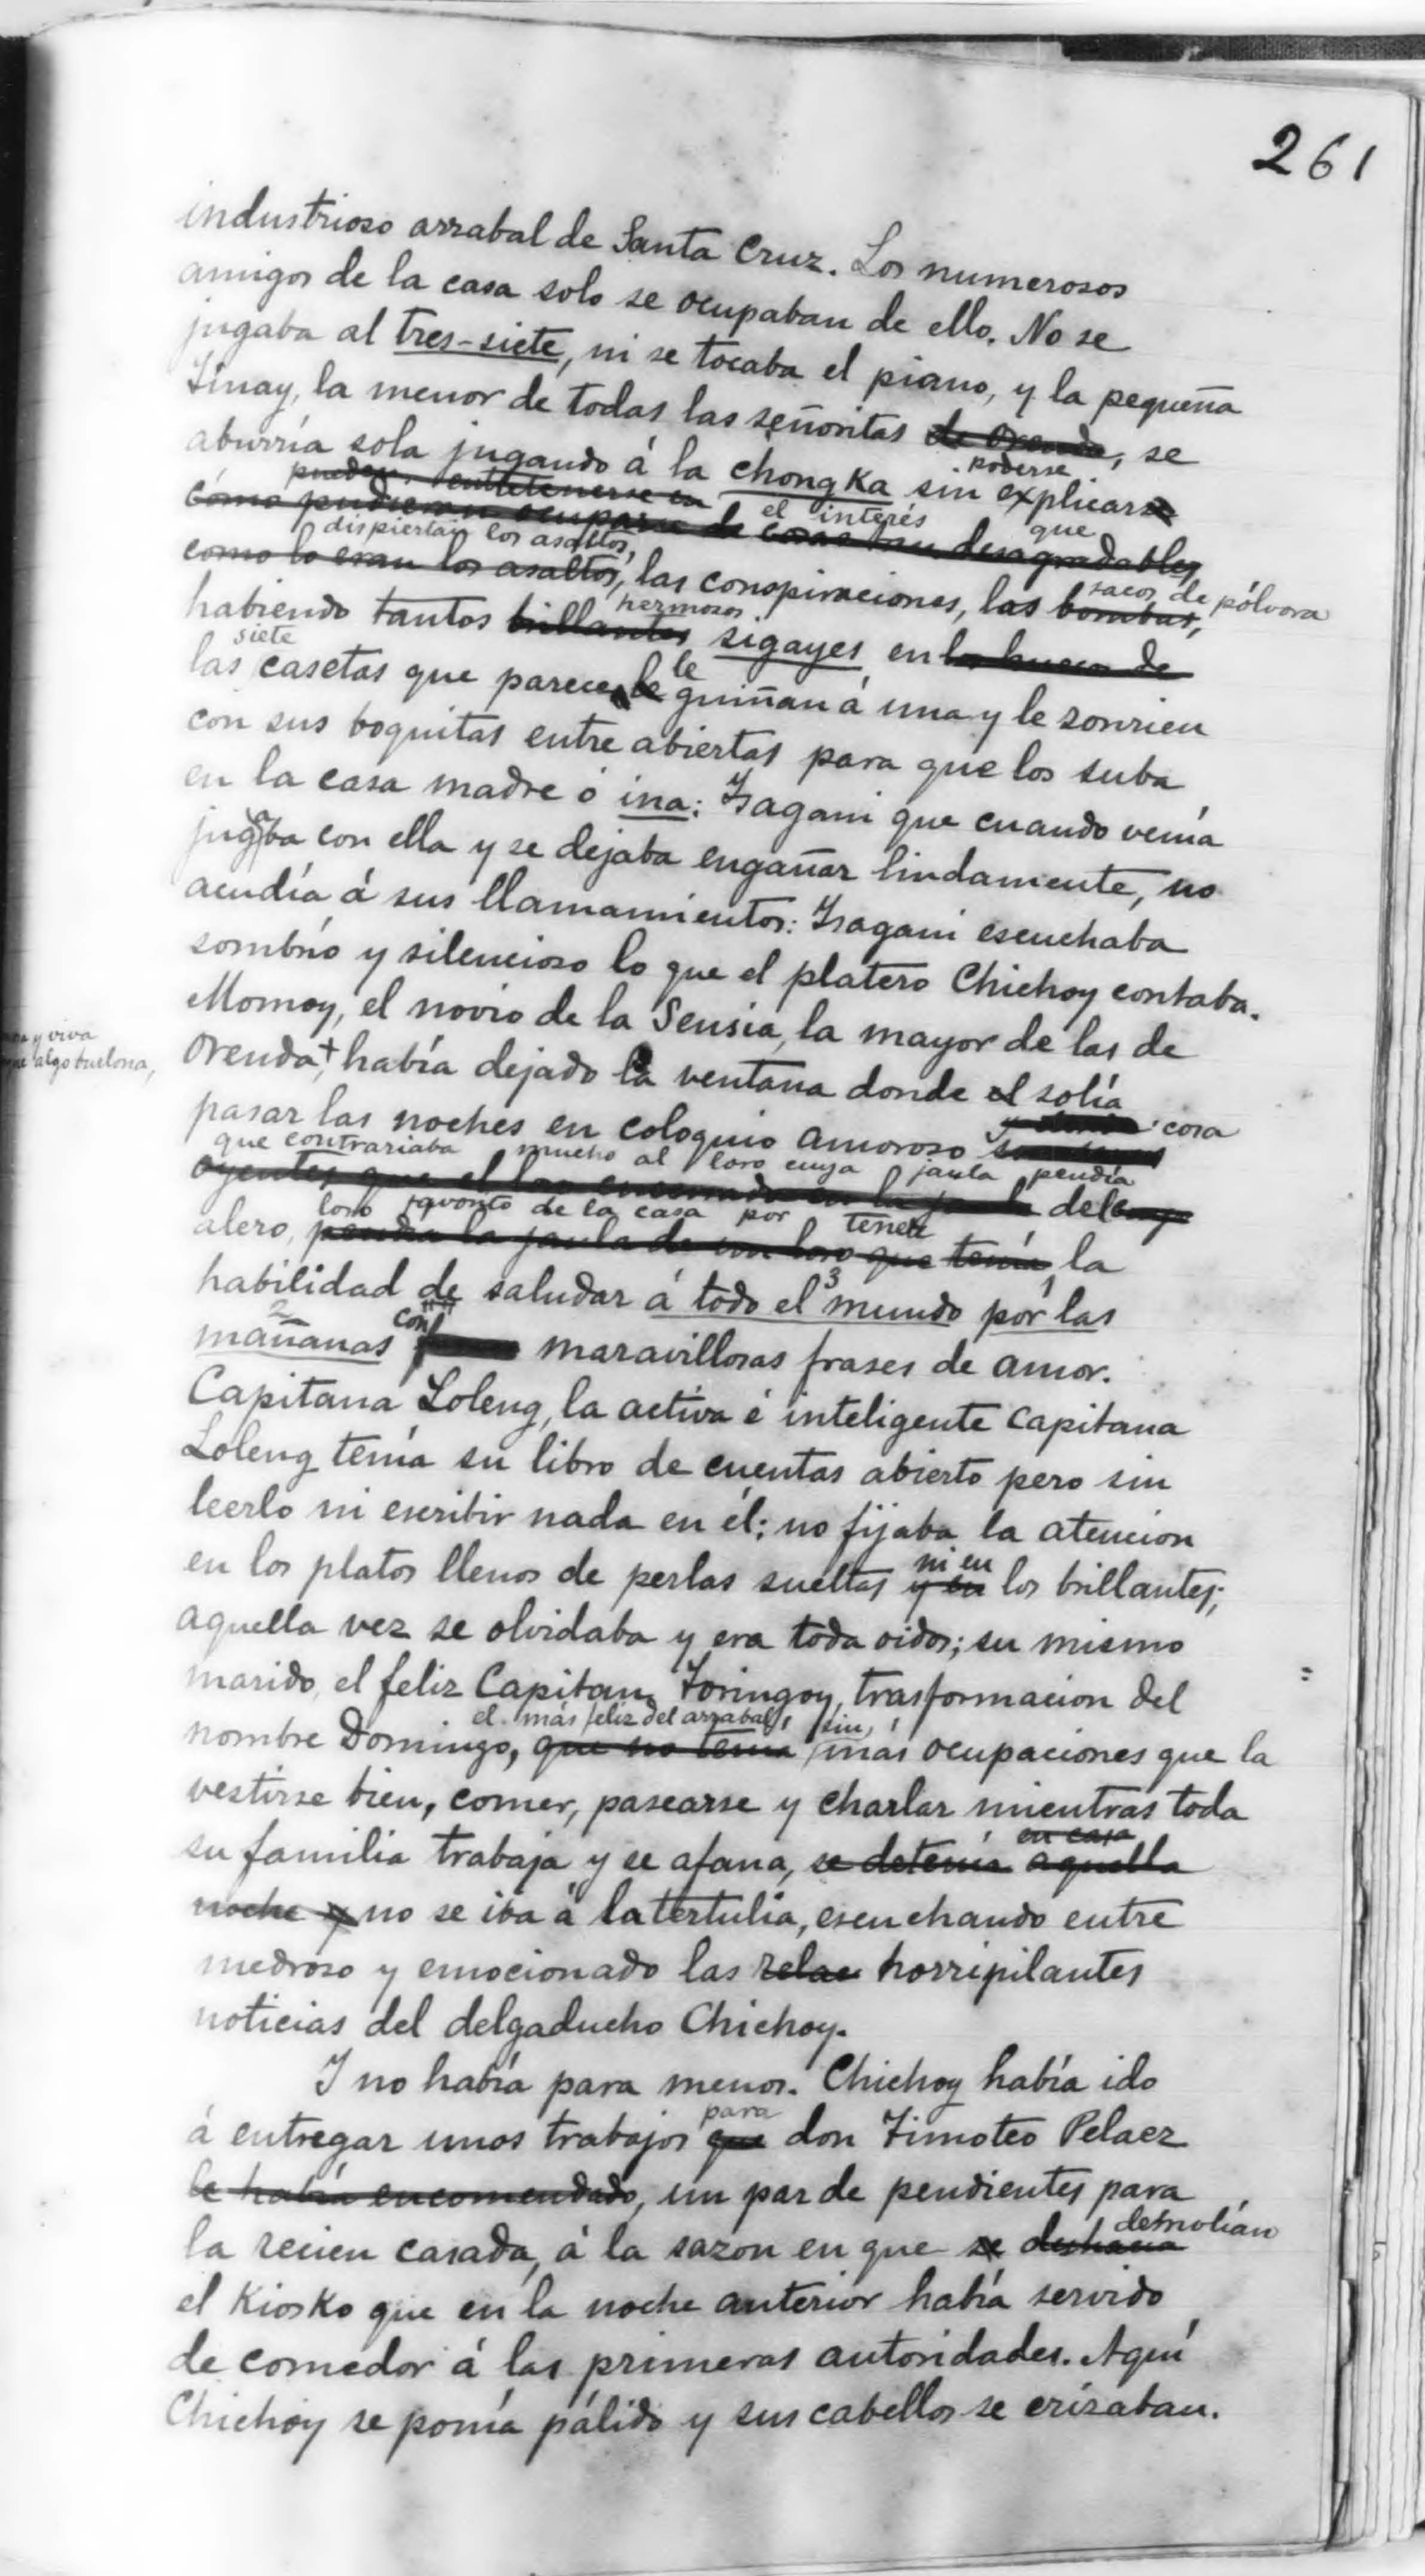 261
industrioso arrabal de Santa Cruz. Los numerosos
amigos de la casa solo se ocupaban de ello. No se
jugaba al tres-siete, ni se tocaba el piano, y la pequeña
Tinay, la menor de todas las señoritas de Orenda, se
aburría sola jugando á la chongka sin explicarse
poderse
pueden entretenerse en el interés que
cómo pudieran ocuparse de cosas tan desagradables
dispiertan los asaltos,
como lo eran los asaltos, las conspiraciones, las bombas,
sacos de pólvora
habiendo tantos brillantes sigayes en los huecos de
hermosos
siete
las casetas que parece le guiñan á una y le sonrien
con sus boquitas entre abiertas para que los suba
en la casa madre ó ina: Isagani que cuando venía
jugaba con ella y se dejaba engañar lindamente, no
acudía á sus llamamientos: Isagani escuchaba
sombrío y silencioso lo que el platero Chichoy contaba.
Momoy, el novio de la Sensia, la mayor de las de
y viva
algo burlona,
Orenda + había dejado la ventana donde el solía
pasar las noches en coloquio amoroso
cosa
que contrariaba mucho al loro cuya jaula pendía
oyentes que el loro encerrado en la jaula del
loro favorito de la casa por tener
alero, pendía la jaula de un loro que tenía la
habilidad de saludar á todo el 3 mundo por las
2
mañanas con maravillosas frases de amor.
Capitana Loleng, la activa é inteligente Capitana
Loleng tenía su libro de cuentas abierto pero sin
leerlo ni escribir nada en él; no fijaba la atencion
en los platos llenos de perlas sueltas y en los brillantes;
ni en
aquella vez se olvidaba y era toda oidos; su mismo
marido, el feliz Capitan Toringoy, trasformacion del
el más feliz del arrabal, sin
nombre Domingo, que no tenía más ocupaciones que la
vestirse bien, comer, pasearse y charlar mientras toda
en casa
su familia trabaja y se afana, se detenía aquella
noche y no se iba á la tertulia, escuchando entre
medroso y emocionado las relac horripilantes
noticias del delgaducho Chichoy.
Y no había para menos. Chichoy había ido
para
á entregar unos trabajos que don Timoteo Pelaez
le había encomendado, un par de pendientes para
la recien casada, á la sazon en que se deshacia
demolían
el Kiosko que en la noche anterior había servido
de comedor á las primeras autoridades. Aquí
Chichoy se ponía pálido y sus cabellos se erizaban.